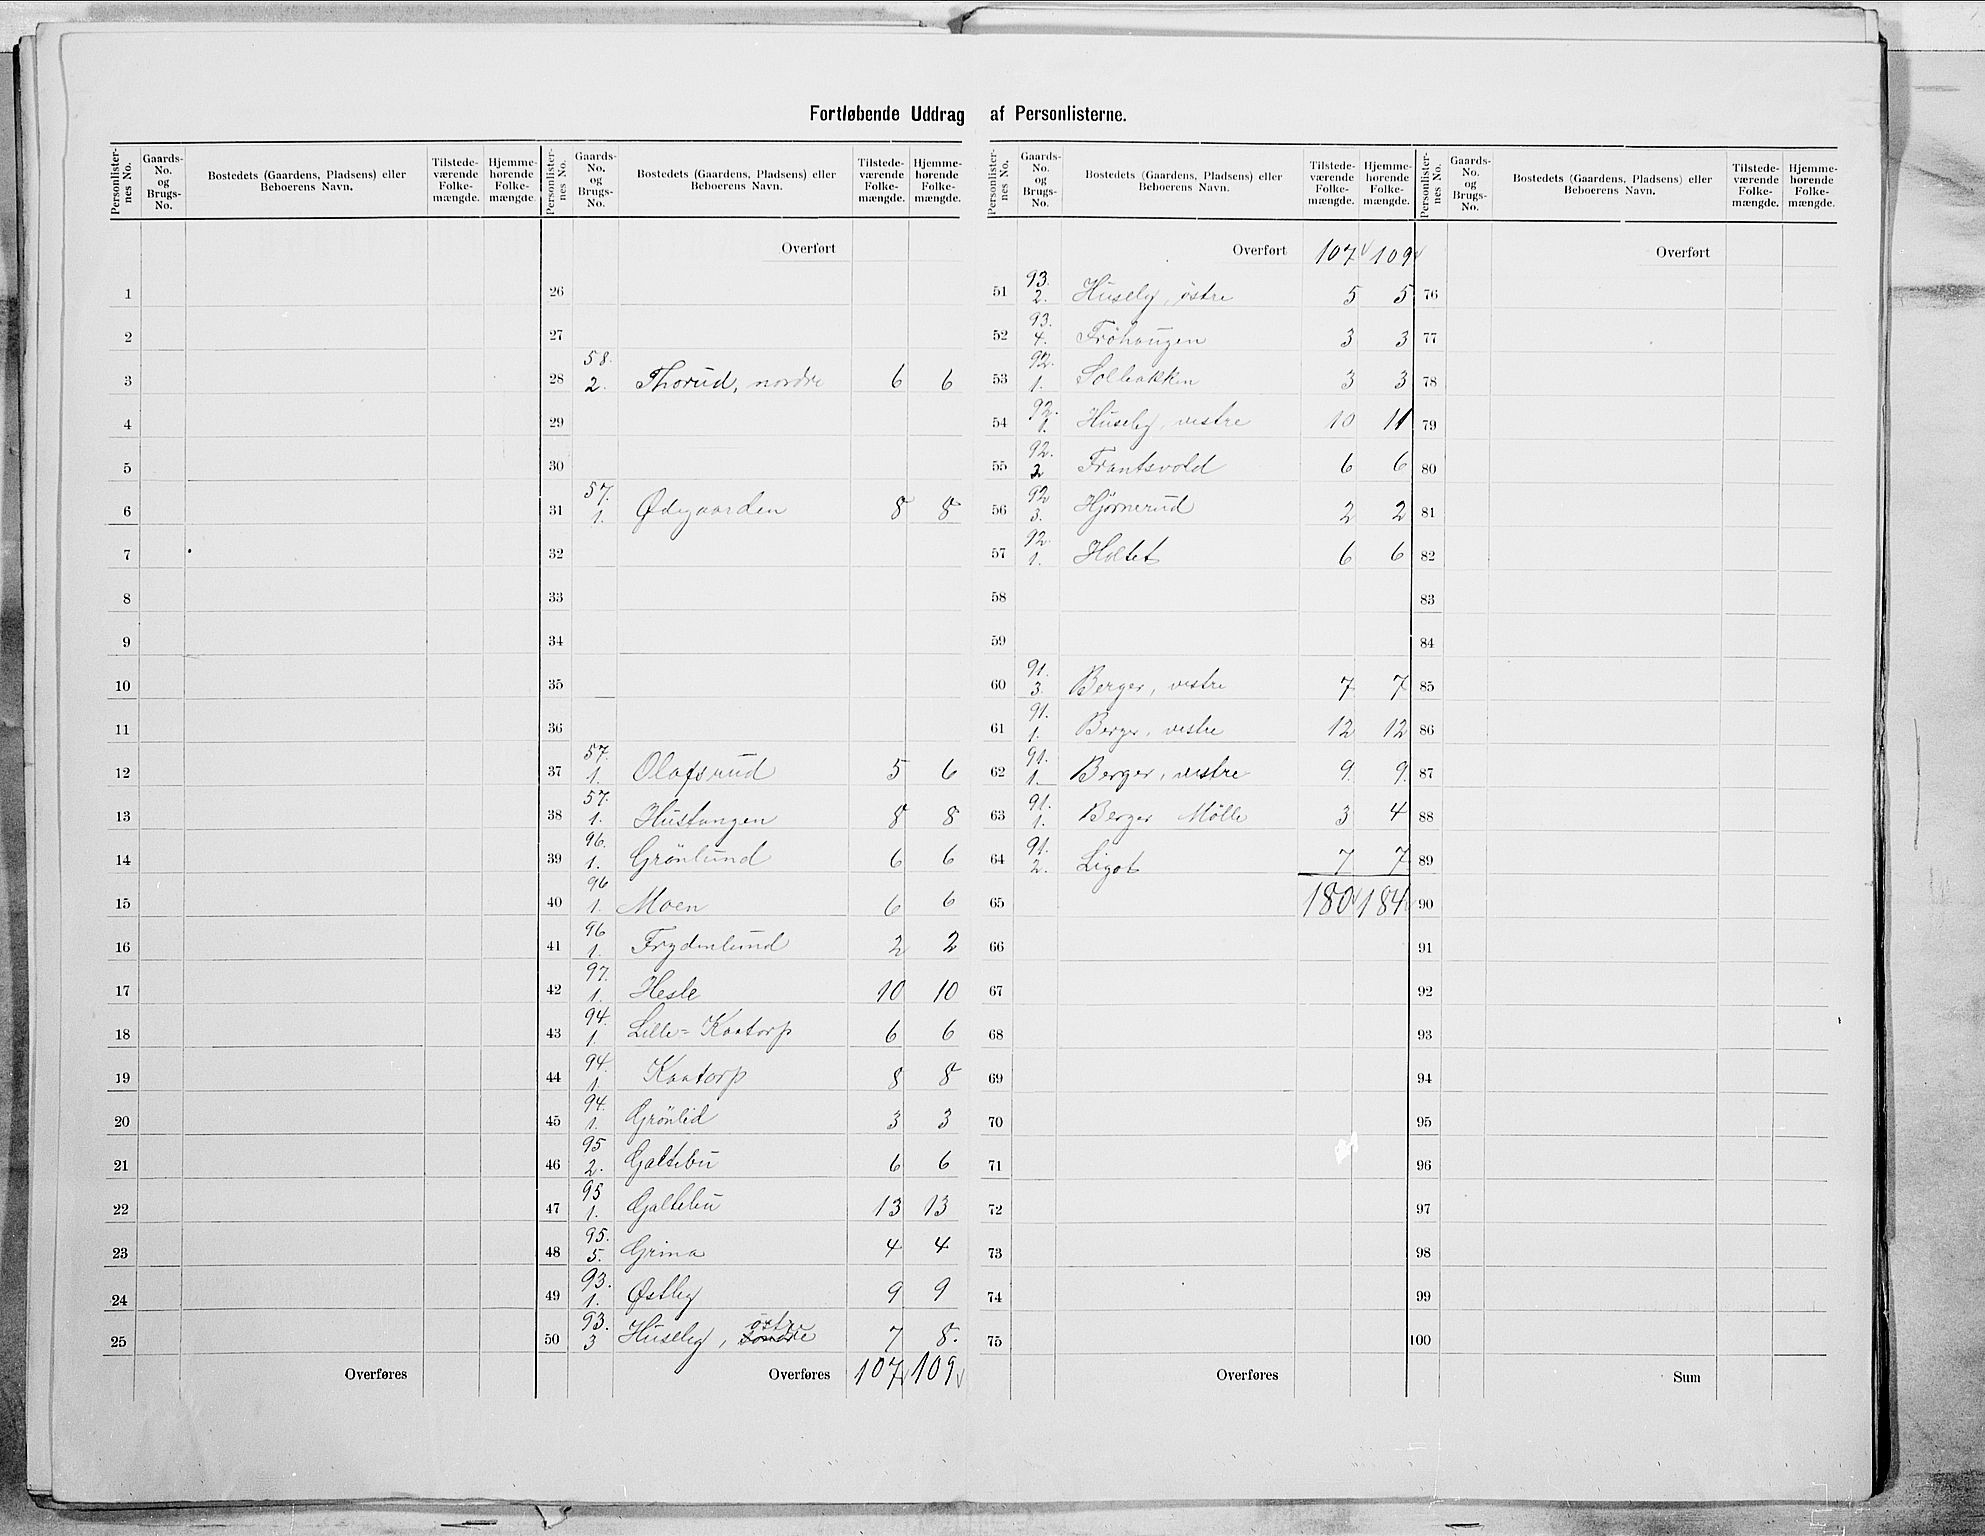 Fortløbende Uddrag af Personlisterne.
Personlister-nes No. | Gaards-No. og Brugs-No. | Bostedets (Gaardens, Pladsens) eller Beboerens Navn. | Tilstede-værende Folke-mængde. | Hjemme-hørende Folke-mængde.
1
2
3
4
5
6
7
8
9
10
11
12
13
14
15
16
17
18
19
20
21
22
23
24
25
Overføres
Personlister-nes No. | Gaards-No. og Brugs-No. | Bostedets (Gaardens, Pladsens) eller Beboerens Navn. | Tilstede-værende Folke-mængde. | Hjemme-hørende Folke-mængde.
Overført
26
27
28 | 58. 2. | Thorud, nordre | 6 | 6
29
30
31 | 57. 1. | Ødegaarden | 8 | 8
32
33
34
35
36
37 | 57. 1. | Olafsrud | 5 | 6
38 | 57. 1. | Hustangen | 8 | 8
39 | 96. 1. | Grönlund | 6 | 6
40 | 96 1. | Moen | 6 | 6
41 | 96 1. | Frydenlund | 2 | 2
42 | 97. 1. | Hesle | 10 | 10
43 | 94. 1. | Lille= Kaatorp | 6 | 6
44 | 94. 1. | Kaatorp | 8 | 8
45 | 94. 1. | Grönlid | 3 | 3
46 | 95 2. | Galtebu | 6 | 6
47 | 95 1. | Galtebu | 13 | 13
48 | 95. 5. | Grina | 4 | 4
49 | 93. 1. | Østby | 9 | 9
50 | 93. 3 | Huseby, söndre östre | 7 | 8.
Overføres | 107 | 109
Personlister-nes No. | Gaards-No. og Brugs-No. | Bostedets (Gaardens, Pladsens) eller Beboerens Navn. | Tilstede-værende Folke-mængde. | Hjemme-hørende Folke-mængde.
Overført | 107 | 109
51 | 93. 2. | Huseby, östre | 5 | 5
52 | 93. 4. | Fröhaugen | 3 | 3
53 | 92. 1. | Solbakken | 3 | 3
54 | 92. 1. | Huseby, vestre | 10 | 11
55 | 92. 2 | Frantsvold | 6 | 6
56 | 92 3. | Hjørnerud | 2 | 2
57 | 92. 1. | Holtet | 6 | 6
58
59
60 | 91. 3. | Berger, vestre | 7 | 7
61 | 91. 1. | Berger, vestre | 12 | 12
62 | 91. 1. | Berger, vestre | 9 | 9
63 | 91. 1. | Berger Mölle | 3 | 4
64 | 91. 2. | Ligot | 7 | 7
65 | 180 | 184
66
67
68
69
70
71
72
73
74
75
Overføres
Personlister-nes No. | Gaards-No. og Brugs-No. | Bostedets (Gaardens, Pladsens) eller Beboerens Navn. | Tilstede-værende Folke-mængde. | Hjemme-hørende Folke-mængde.
Overført
76
77
78
79
80
81
82
83
84
85
86
87
88
89
90
91
92
93
94
95
96
97
98
99
100
Sum